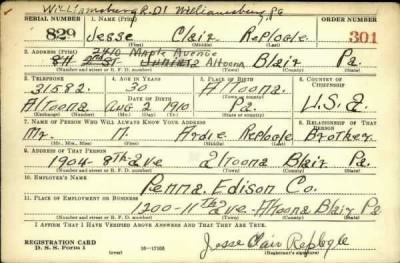 Williamsburg R.D1 Williamsburg Pa
SERIAL NUMBER 1. NAME (Print) ORDER NUMBER
829 Jesse Clair Replogle 301
(First) (Middle) (Last)
2. ADDRESS (Print) 2410 Maple Avenue
2nd St. Juniata Altoona Blair Pa.
(Number and street or R. F. D. number) (Town) (County) (State)
3. TELEPHONE 4. AGE IN YEARS 5. PLACE OF BIRTH 6. COUNTRY OF CITIZENSHIP
31582. 30 Altoona
DATE OF BIRTH (Town or county)
Altoona Aug 2 1910 Pa. U.S.a
(Exchange) (Number) (Mo.) (Day) (Yr.) (State or country)
7. NAME OF PERSON WHO WILL ALWAYS KNOW YOUR ADDRESS 8. RELATIONSHIP OF THAT PERSON
Mr. N. Ardie Replogle Brother
(Mr., Mrs., Miss) (First) (Middle) (Last)
9. ADDRESS OF THAT PERSON
1904-8th ave altoona Blair Pa.
(Number and street or R. F. D. number) (Town) (County) (State)
10. EMPLOYER'S NAME
Penna Edison Co.
11. PLACE OF EMPLOYMENT OR BUSINESS
1200-11th ave-Altoona Blair Pa
(Number and street or R. F. D. number) (Town) (County) (State)
I AFFIRM THAT I HAVE VERIFIED ABOVE ANSWERS AND THAT THEY ARE TRUE.
REGISTRATION CARD
D. S. S. Form 1 16—17105 Jesse Clair Replogle
(Registrant's signature)